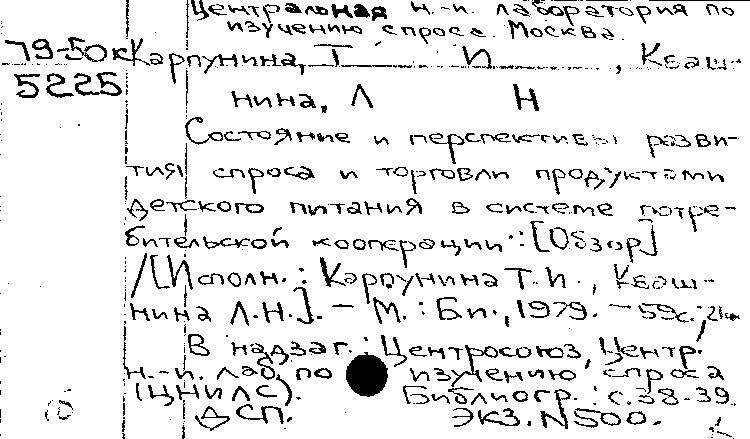 Центральная н.-и. лаборатория по
изучению спроса. Москва.
79-50к Карпунина, Т И , Кваш-
5225
нина, Л Н
Состояние и перспективы разви-
тия спроса и торговли продуктами
детского питания в системе потре-
бительской кооперации: [Обзор]
/[Исполн.: Карпунина Т.И., Кваш-
нина Л.Н.]. - М.: Б.и., 1979. - 59с.; 21см
В надзаг.: Центросоюз, Центр.
н.-и. лаб. по изучению спроса
(ЦНИЛС). Библиогр.: с.38-39.
ДСП. Экз. N500.